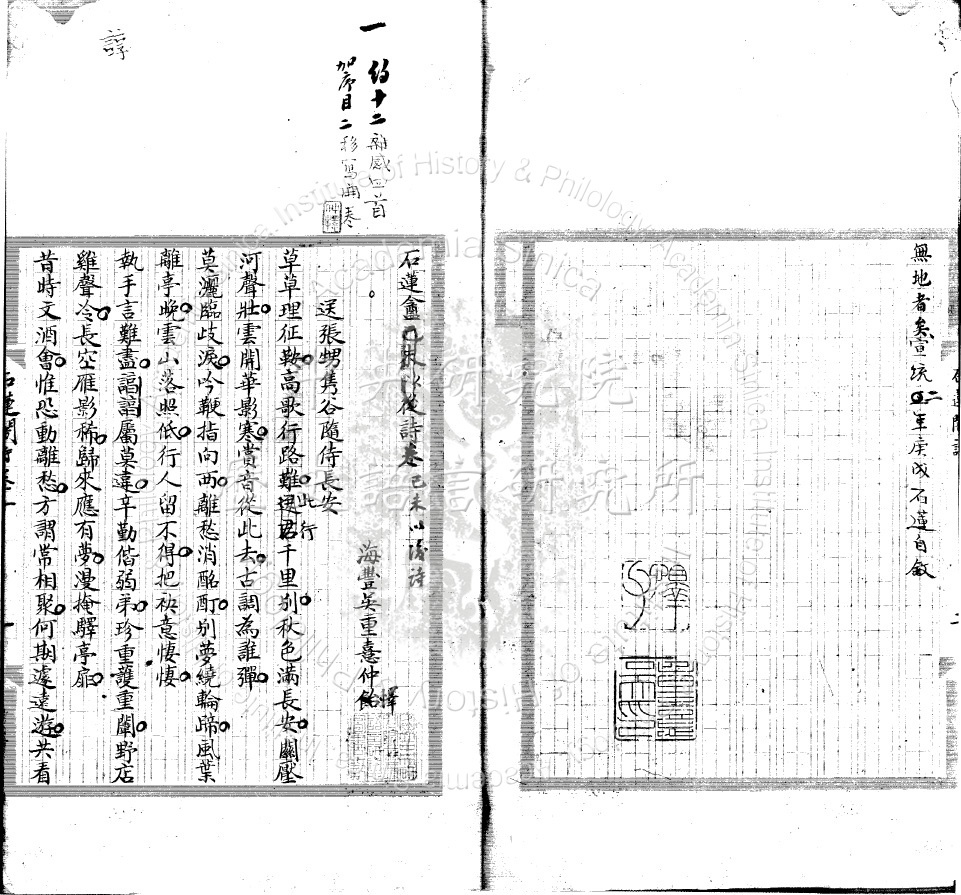 無地者矣宣統二年庚戌石蓮自敘
石蓮闇詩
一
約十二
雜感四首
加序目二
移寫開卷
諄
石蓮盦己未以後詩卷
己未以後詩
海豐吳重憙仲飴
懌
送張甥雋谷隨侍長安
草草理征鞍高歌行路難送君千里別秋色滿長安關壓
此行
河聲壯雲開華影寒賞音從此去古調為誰彈
莫灑臨歧淚吟鞭指向西離愁消酩酊別夢繞輪蹄風葉
離亭晚雲山落照低行人留不得把袂意悽悽
執手言難盡諄諄屬莫違辛勤偕弱弟珍重護重闈野店
雞聲冷長空雁影稀歸來應有夢漫掩驛亭扉
昔時文酒會惟恐動離愁方謂常相聚何期遽遠遊共看
石蓮闇詩卷一
一
Institute of History & Philology, Academia Sinica
中研究院
語言研究所